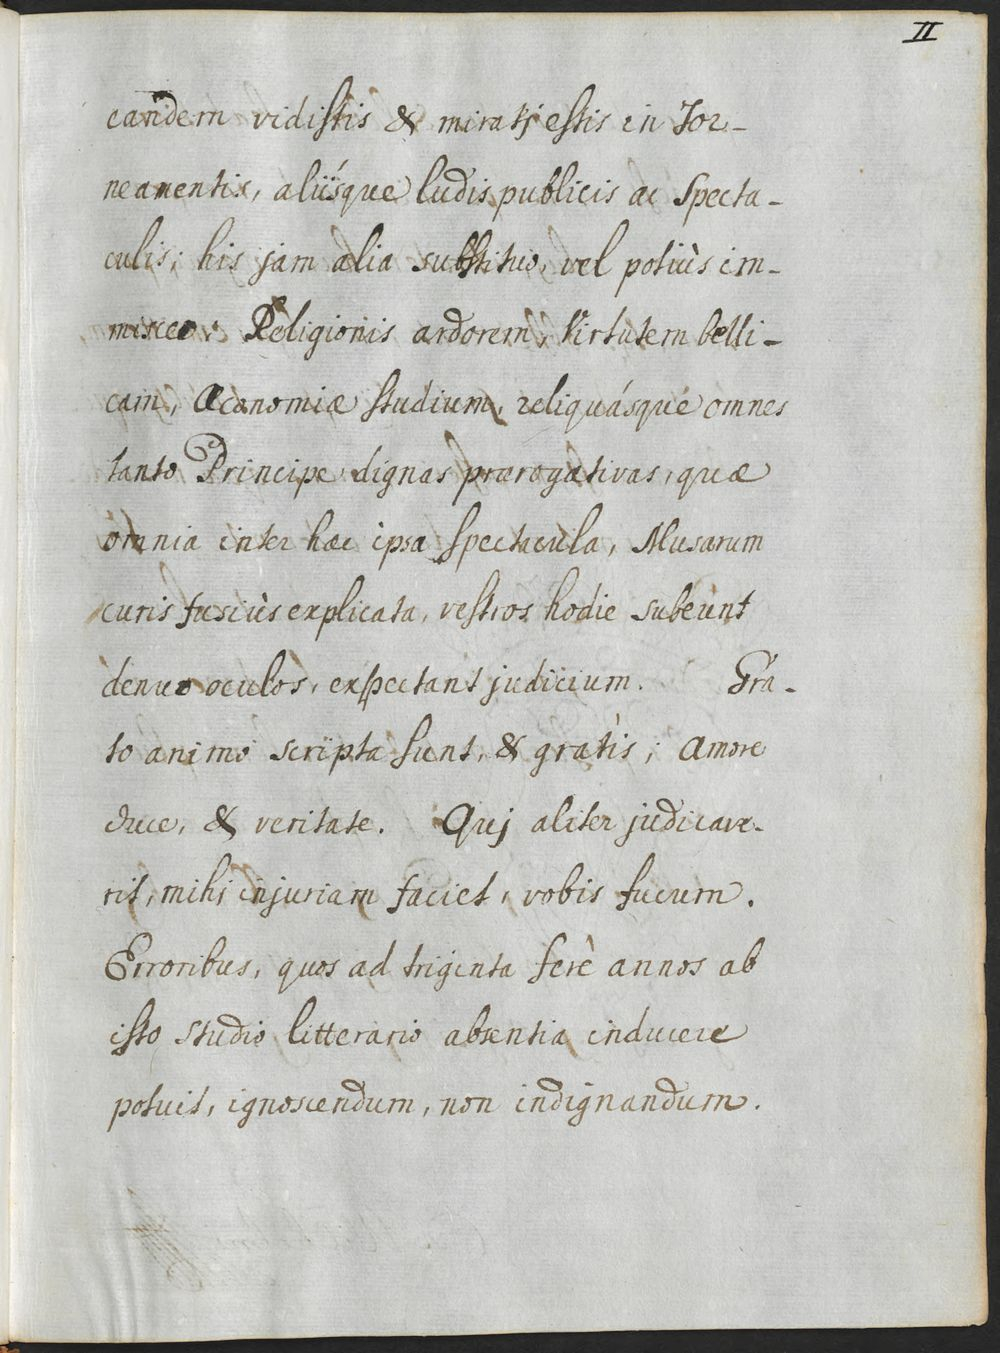 II
eandem vidistis & miratj estis in Tor-
neamentis, aliísque ludis publicis ac Specta-
culis; his jam alia substituo, vel potiùs im-
misceo; Religionis ardorem, Virtutem belli-
cam, Œconomiæ studium, reliquásque omnes
tanto Principe dignas prærogativas, quæ
omnia inter hæc ipsa spectacula, Musarum
curis fusiùs explicata, vestros hodie subeunt
denuo oculos, expectant judicium. Gra-
to animo scripta sunt, & gratis; Amore
duce, & veritate. Quj aliter judicave-
rit, mihi injuriam faciet, vobis fucum.
Erroribus, quos ad triginta ferè annos ab
isto studio litterario absentia inducere
potuit, ignoscendum, non indignandum.